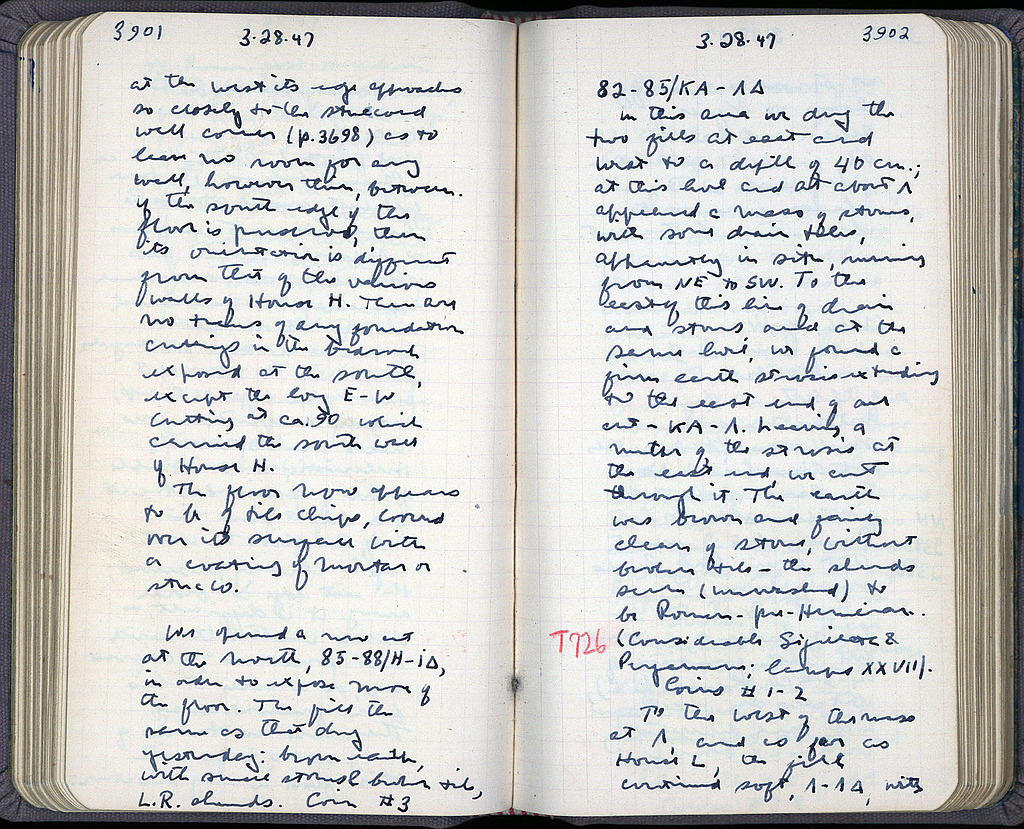 3901
3.28.47
at the west its edge approaches
so closely to the stuccoed
wall corner (p.3698) as to
leave no room for any
wall, however thin, between.
If the south edge of the
floor is preserved, then
its orientation is different
from that of the various
walls of House H. There are
no traces of any foundation
cuttings in the bedrock
exposed at the south,
except the long E-W
cutting at ca. 90 which
carried the south wall
of House H.
The floor now appears
to be of tile chips, covered
over its surface with
a coating of mortar or
stucco.
We opened a new cut
at the north, 85-88/H-ΙΔ,
in order to expose more of
the floor. The fill the
same as that dug
yesterday: brown earth,
with small stones & broken tile,
L.R. sherds. Coin #3
3.28.47
3902
82-85/KA-ΛΔ
In this area we dug the
two fills at east and
west to a depth of 40 cm.;
at this level and at about Λ
appeared a mass of stones,
with some drain tiles,
apparently in situ, running
from NE to SW. To the
east of this line of drain
and stones and at the
same level, we found a
firm earth strosis extending
to the east end of our
cut - KA-Λ. Leaving a
of the strosis at
the east end, we cut
through it. The earth
was brown and fairly
clean of stone, without
broken tiles - the sherds
seem (unwashed) to
be Roman - pre-Herulian.
T726
(Considerable Sigillata &
Pergamene; lamps XXVII).
Coins #1-2
To the west of the mass
at Λ, and as far as
House L, the fill
continued soft, Λ-ΛΔ, with